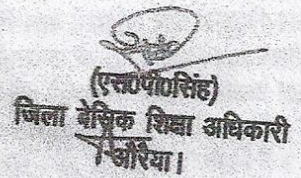 (एस0पी0सिंह)
जिला बेसिक शिक्षा अधिकारी
औरैया।